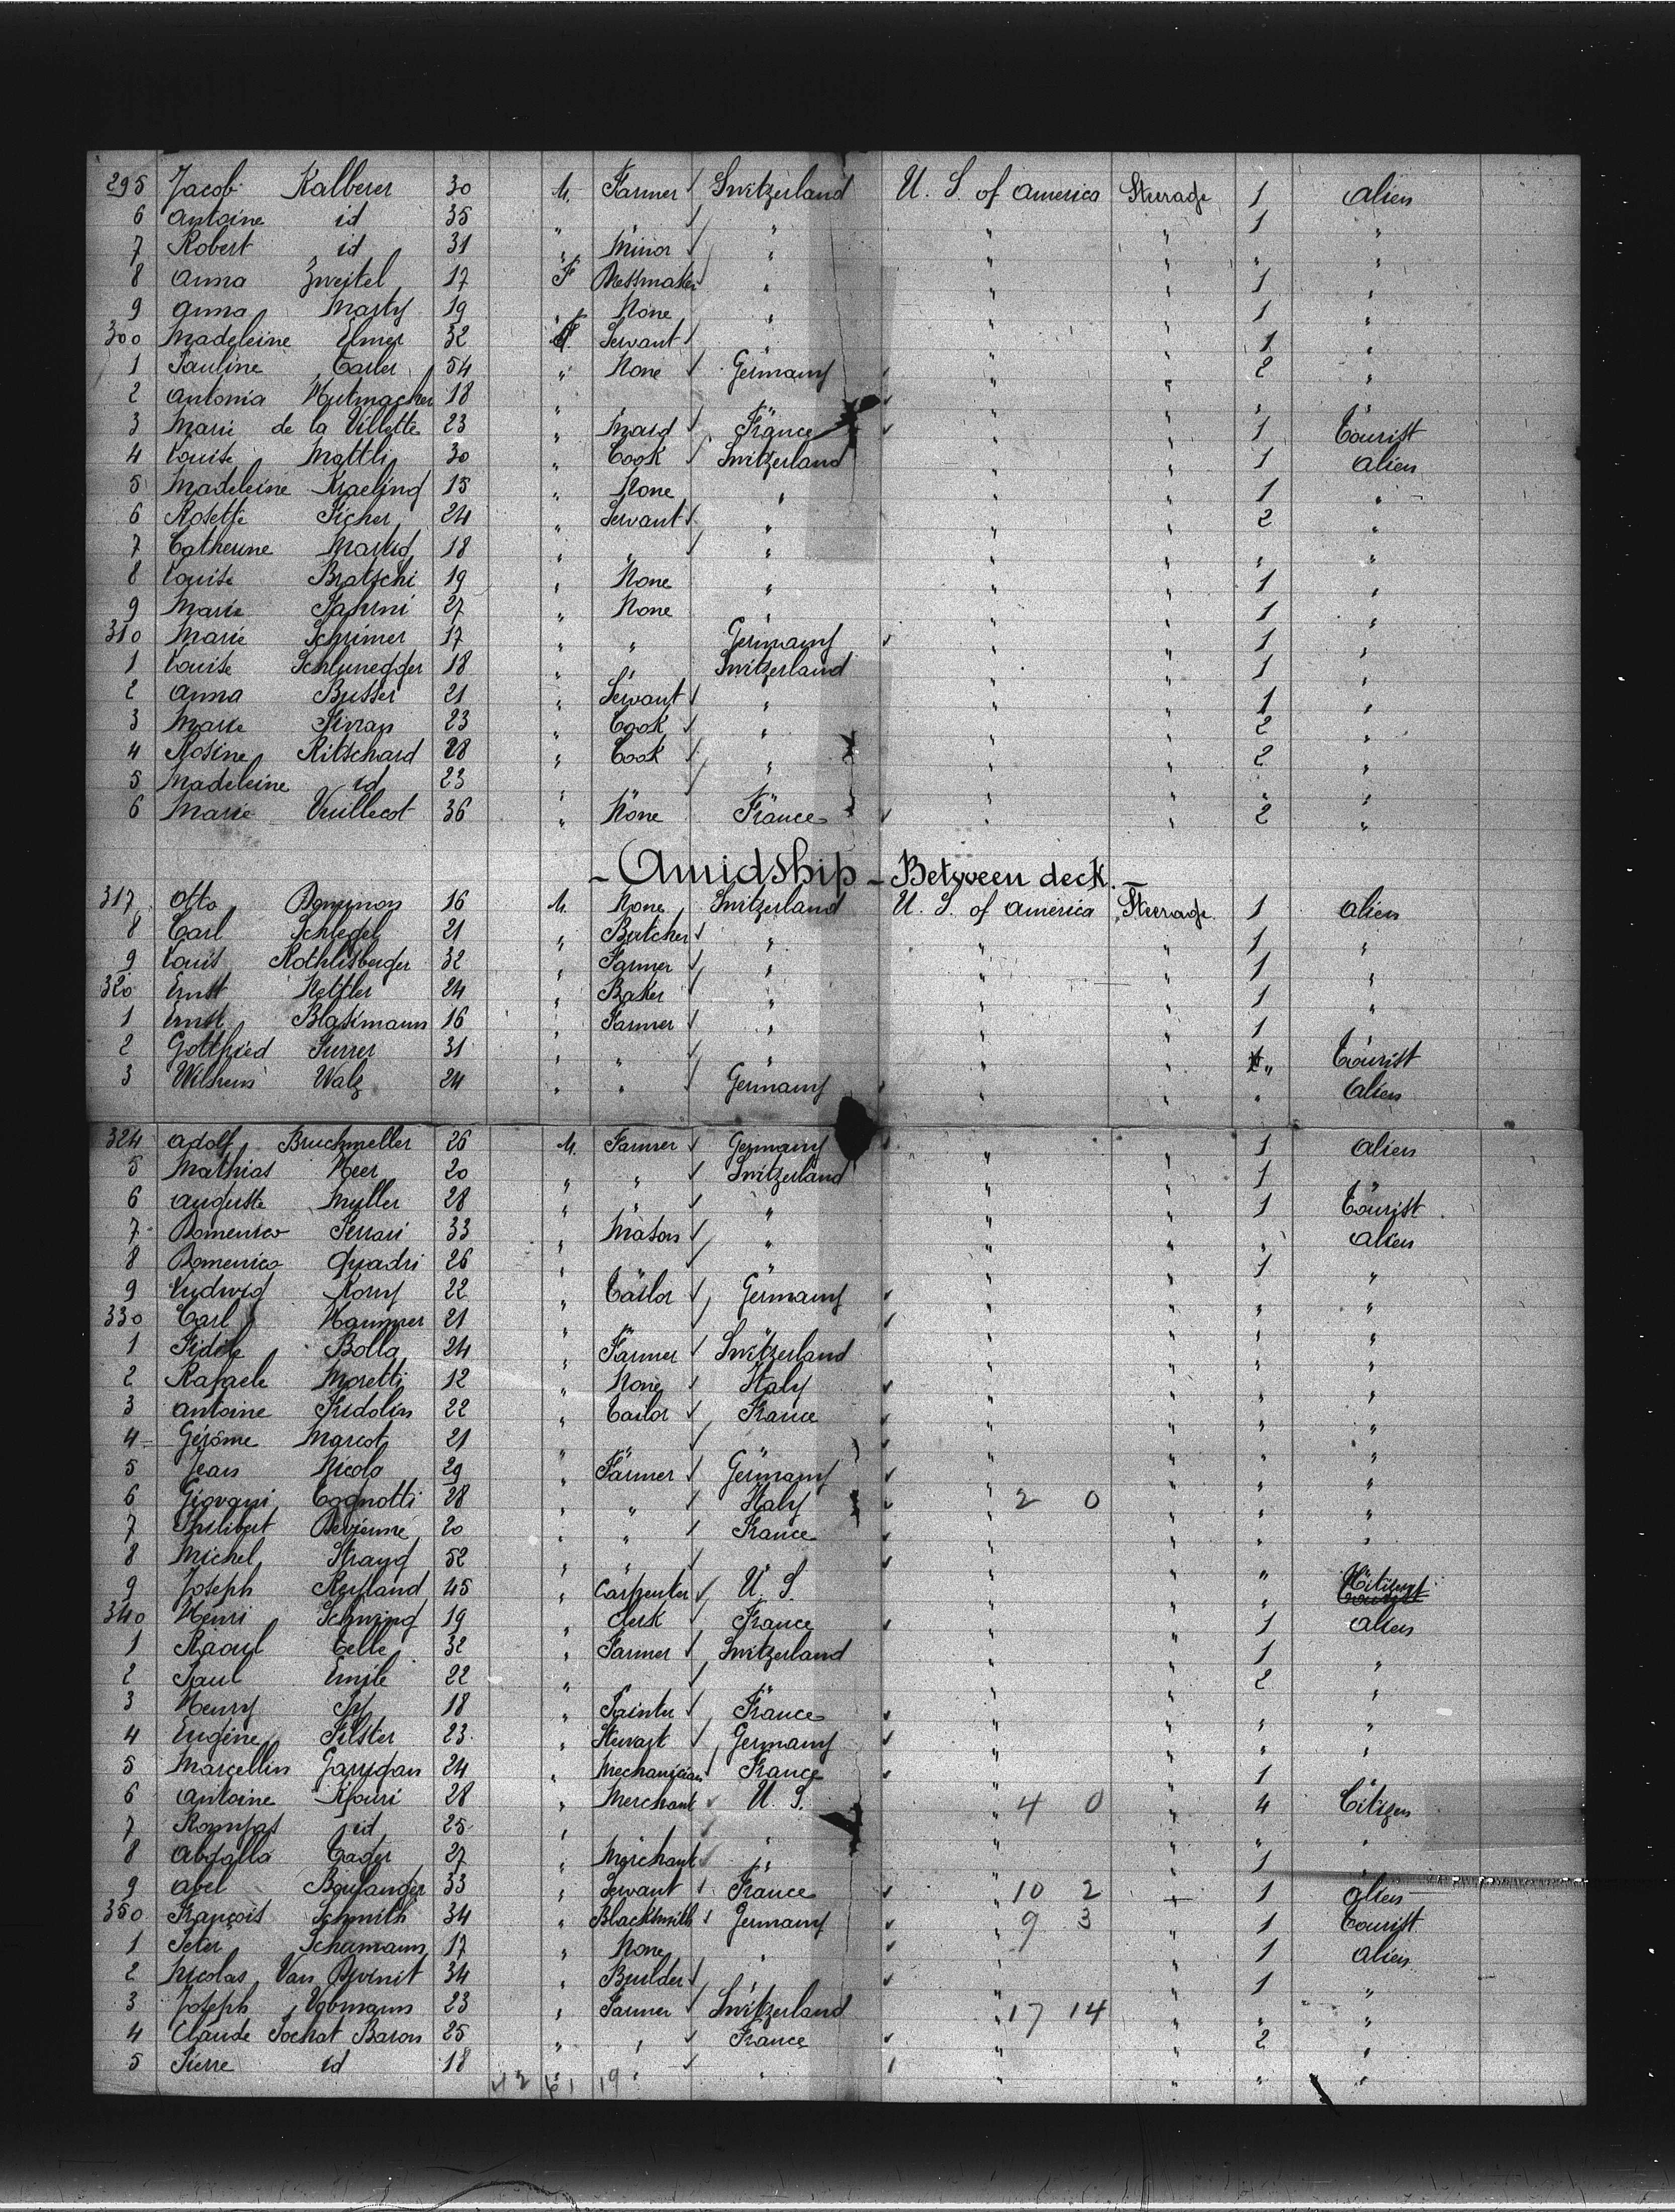 295 Jacob Kalberer 30 M. Farmer ✓ Switzerland U. S. of America Steerage 1 Alien
6 Antoine id 35 " " ✓ " " " 1 "
7 Robert id 31 " Minor ✓ " " " " "
8 Anna Zweifel 17 F Dressmaker " " " 1 "
9 Anna Marty 19 " None " " " 1 "
300 Madeleine Elmer 32 F. Servant ✓ " " " 1 "
1 Pauline Carler 54 " None ✓ Germany ✓ " " 2 "
2 Antonia Hutmacher 18 " " " ✓ " " " "
3 Marie de la Villette 23 " Maid ✓ France ✓ " " 1 Tourist
4 Louise Mattli 30 " Cook ✓ Switzerland " " 1 Alien
5 Madeleine Kraeling 15 " None " " " 1 "
6 Rosette Ficher 24 " Servant ✓ " " " 2 "
7 Catherine 18 " " ✓ " " " " "
8 Louise Bratschi 19 " None " " " 1 "
9 Marie 27 " None " " " 1 "
310 Marie Schrimer 17 " " Germany ✓ " " 1 "
1 Louise Schlunegger 18 " " Switzerland " " 1 "
2 Anna Busser 21 " Servant ✓ " " " 1 "
3 Marie 23 " Cook ✓ " " " 2 "
4 Rosine Ritschard 28 " Cook ✓ " " " 2 "
5 Madeleine id 23 " " ✓ " " " " "
6 Marie Vuillecot 36 " None France ✓ " " 2 "
- Amidship - Between deck. -
317 Otto 16 M. None Switzerland U. S. of America Steerage 1 Alien
8 Carl Schlegel 21 " Butcher ✓ " " " 1 "
9 Louis Rothlisberger 32 " Farmer ✓ " " " 1 "
320 Ernst 24 " Baker ✓ " " " 1 "
1 Ernst Blasimann 16 " Farmer ✓ " " " 1 "
2 Gottfried Furrer 31 " " ✓ " " " " Tourist
3 Wilhem Walz 24 " " ✓ Germany ✓ " " " Alien
324 Adolf Bruchmeller 26 M. Farmer ✓ Germany ✓ " " 1 Alien
5 Mathias Heer 20 " " ✓ Switzerland " " 1 "
6 Auguste Muller 28 " " ✓ " " " 1 Tourist
7 Domenico Ferrari 33 " Mason ✓ " " " " Alien
8 Domenico Quadri 26 " " ✓ " " " 1 "
9 Ludwig Korny 22 " Tailor ✓ Germany ✓ " " " "
330 Carl Hammer 21 " " " ✓ " " " "
1 Fidele Bolla 24 " Farmer ✓ Switzerland " " " "
2 Rafaele Moretti 12 " None ✓ Italy ✓ " " " "
3 Antoine Fridolin 22 " Tailor ✓ France ✓ " " " "
4 Gérôme Marcot 21 " " ✓ " ✓ " " " "
5 Jean Nicolo 29 " Farmer ✓ Germany ✓ " " " "
6 Giovani Cognotti 28 " " ✓ Italy ✓ 2 0 " " "
7 Philibert Devienne 20 " " ✓ France ✓ " " " "
8 Michel Strang 52 " " ✓ " ✓ " " " "
9 Joseph 45 " Carpenter ✓ U. S. " " " Citizen
340 Henri Schwing 19 " Clerk ✓ France ✓ " " 1 Alien
1 Raoul Celle 32 " Farmer ✓ Switzerland " " 1 "
2 Paul Emile 22 " " ✓ " " " 2 "
3 Henry 18 " Painter ✓ France ✓ " " " "
4 Eugène Filster 23 " Stewart ✓ Germany ✓ " " " "
5 Marcellin Garridan 24 " Mechanician ✓ France ✓ " " 1 "
6 Antoine Kfouri 28 " Merchant ✓ U. S. 4 0 " 4 Citizen
7 id 25 " " ✓ " " " " "
8 Abdalla Cader 27 " Merchant ✓ " " " 1 "
9 Abel Boulanger 33 " Servant ✓ France ✓ 10 2 " 1 Alien
350 François Schmith 34 " Blacksmith ✓ Germany ✓ 9 3 " 1 Tourist
1 Peter Schumann 17 " None " ✓ " " 1 Alien
2 Nicolas Van 34 " Builder ✓ " ✓ " " 1 "
3 Joseph 23 " Farmer ✓ Switzerland 17 14 " " "
4 Claude Pochat Baron 25 " " ✓ France ✓ " " 2 "
5 Pierre id 18 " " ✓ " ✓ " " " "
42 61 19